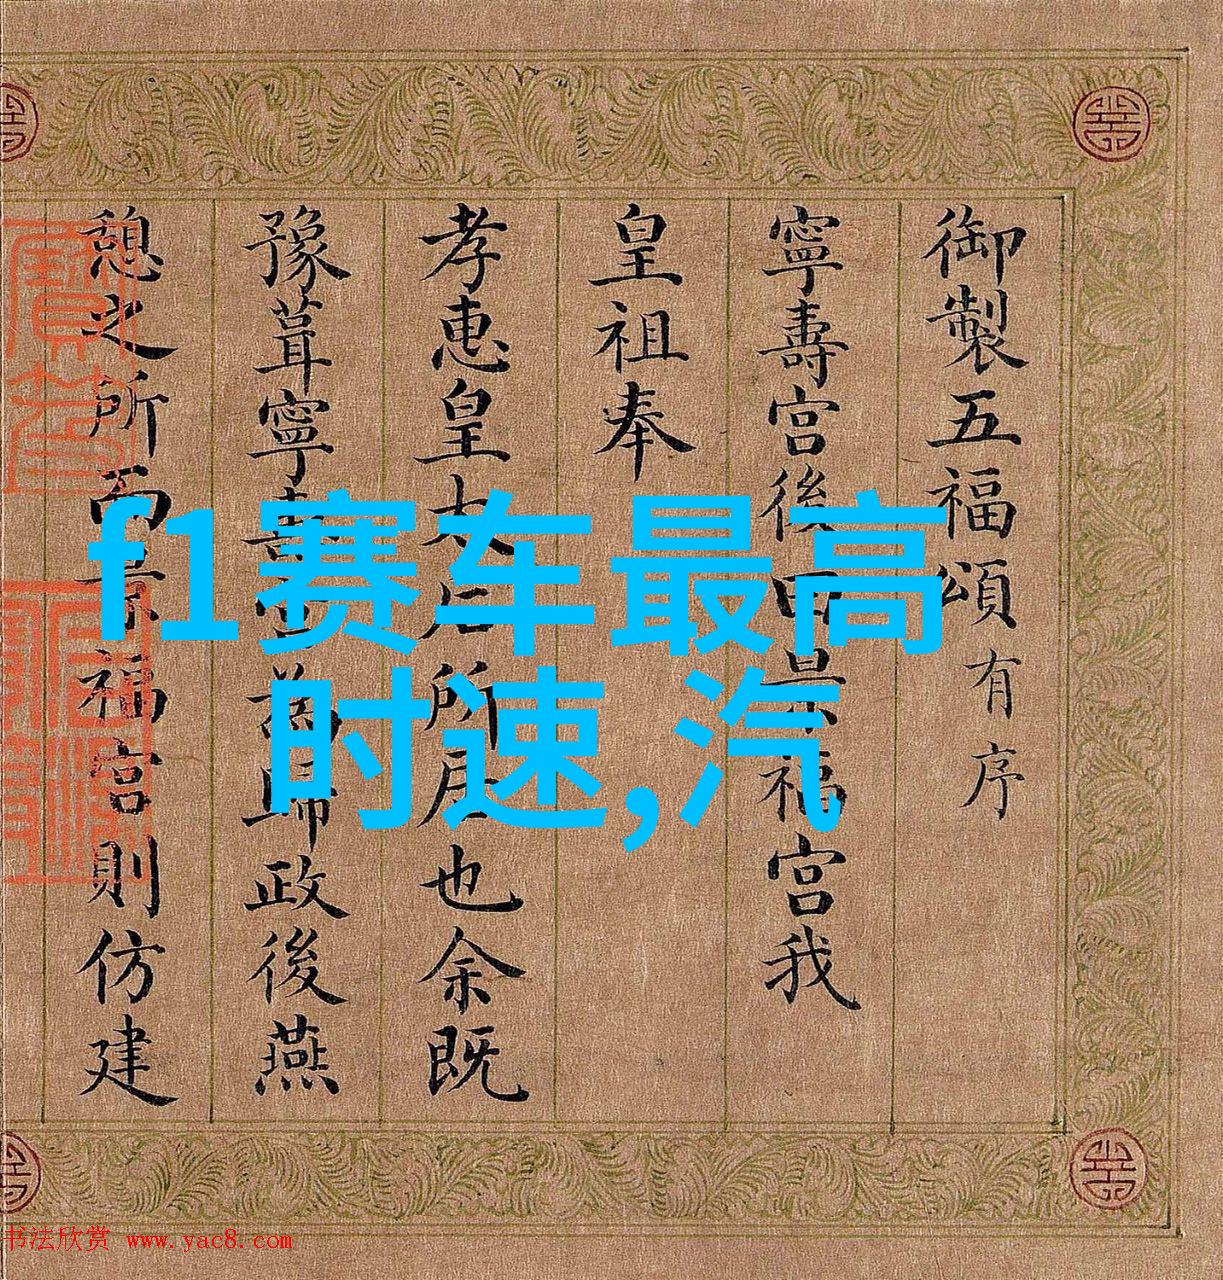 御製五福頌有序
寧壽宮後曰景福宮我
皇祖奉
孝惠皇太后所居也余既
豫葺寧壽宮為歸政後燕
憩之所而景福宮則仿建
f1赛车最高
时速,汽
书法欣赏 www.yac8.com